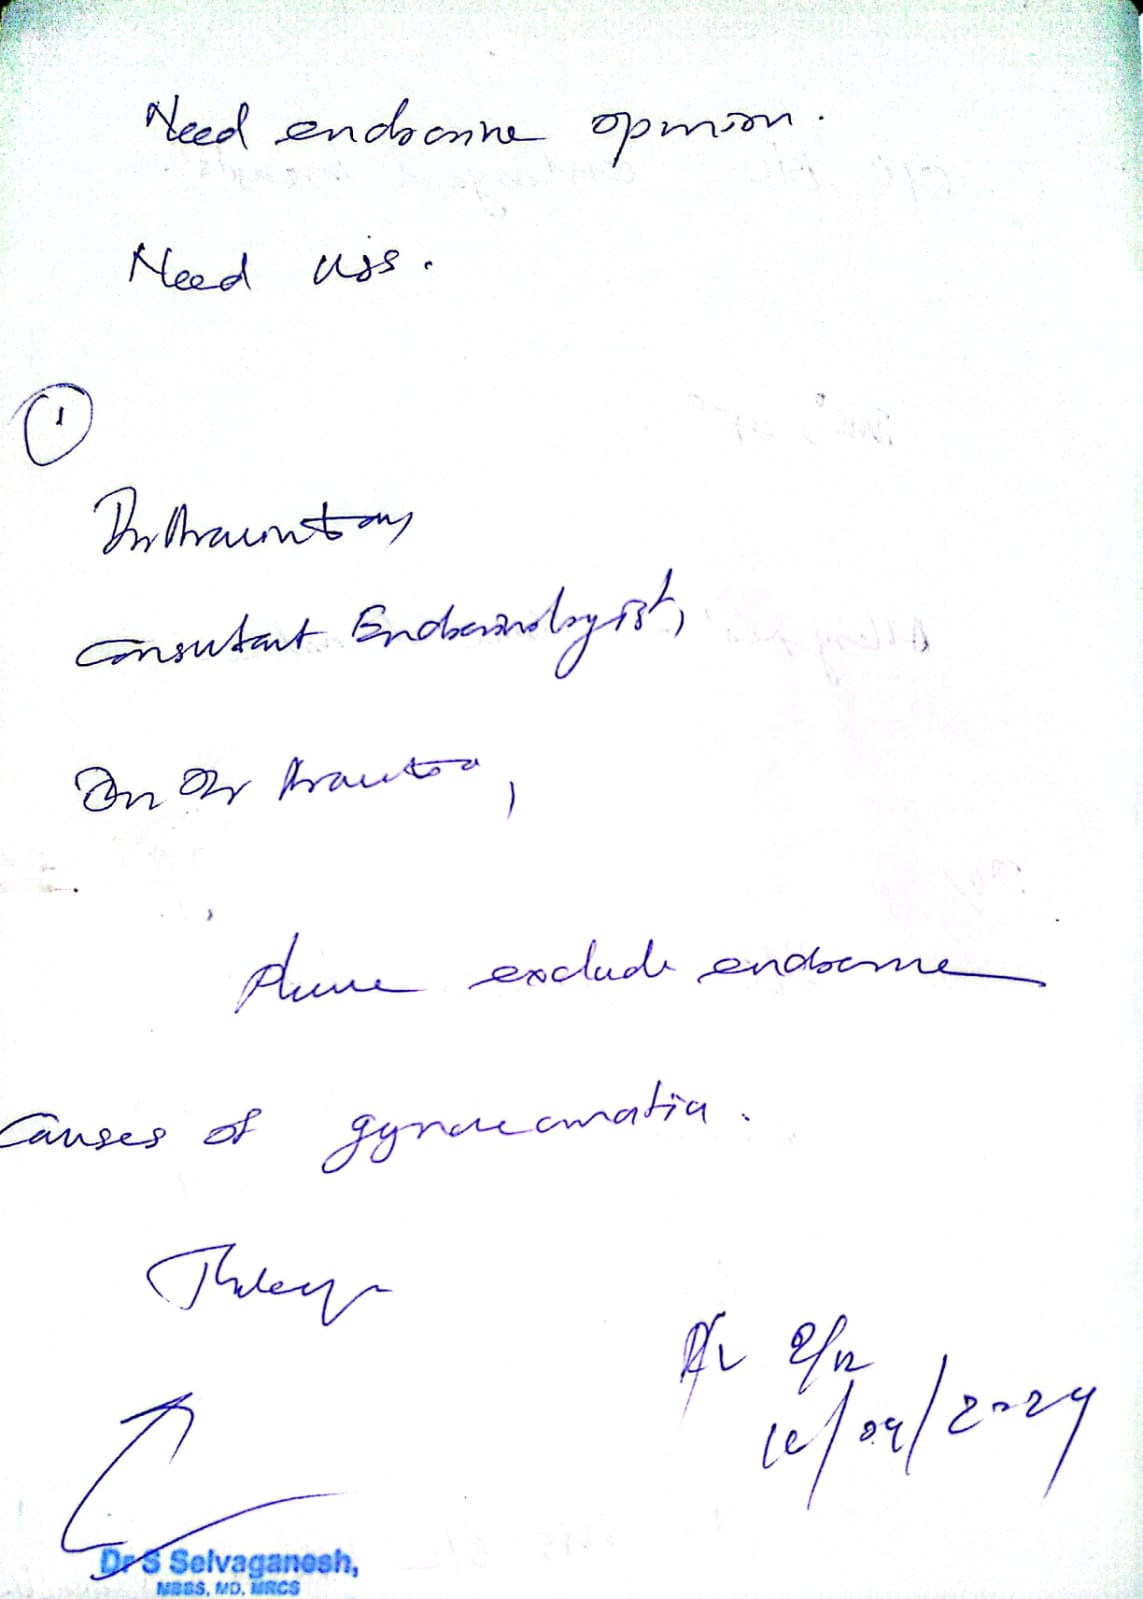 Need endocrine opinion.
Need USS.
1
Dr
Consultant Endocrinologist,
Dr
Please exclude endocrine
causes of gynaecomastia.
R/v 2/12
/2024
Dr S Selvaganesh,
MBBS, MD, MRCS